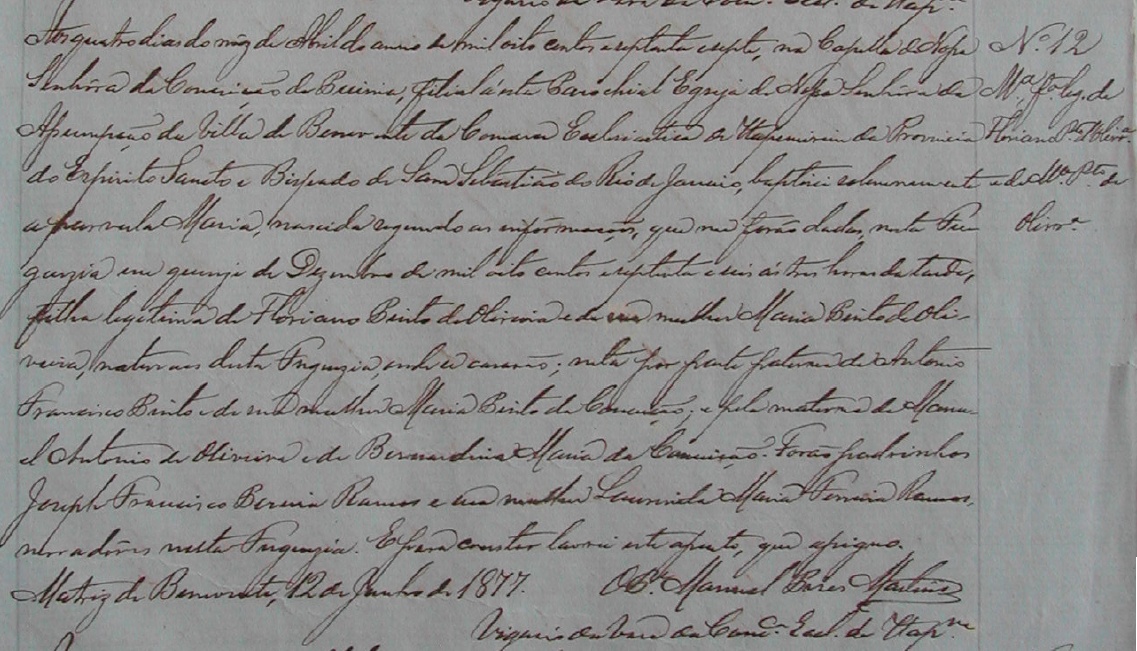 Vigario da Vara da Com.ca Eccl. de Itap.m
Aos quatro dias do mez de Abril do anno de mil oito centos e setenta e sete, na Capella de Nossa
Senhôra da Conceição da Piuma, filial á esta Parochial Egreja de Nossa Senhôra da
Assumpção da Villa de Benevente da Comarca Ecclesiastica de Itapemirim da Provincia
do Espirito Sancto e Bispado de Sam Sebastião do Rio de Janeiro, baptisei solemnemente
a parvula Maria, nascida segundo as informações, que me forão dadas, nesta Fre-
guezia em quinze de Dezembro de mil oito centos e setenta e seis ás tres horas da tarde,
filha legitima de Floriano Pinto de Oliveira e de sua mulher Maria Pinto de Oli-
veira, naturaes desta Freguezia, onde se casarão; neta por parte paterna de Antonio
Francisco Pinto e de sua mulher Maria Pinto da Conceição; e pela materna de Manu-
el Antonio de Oliveira e de Bernardina Maria da Conceição. Forão padrinhos
Joseph Francisco Pereira Ramos e sua mulher Laurinda Maria Ferreira Ramos,
moradôres nesta Freguezia. E para constar lavrei este assento, que assigno.
Matriz de Benevente, 12 de Junho de 1877. O P.e Manuel Pires Martins
Vigario da Vara da Com.ca Eccl. de Itap.rim
Nº 12
M.a f.a leg. de
Floriano P.to d'Olivr.a
e de M.a P.to de
Olivr.a